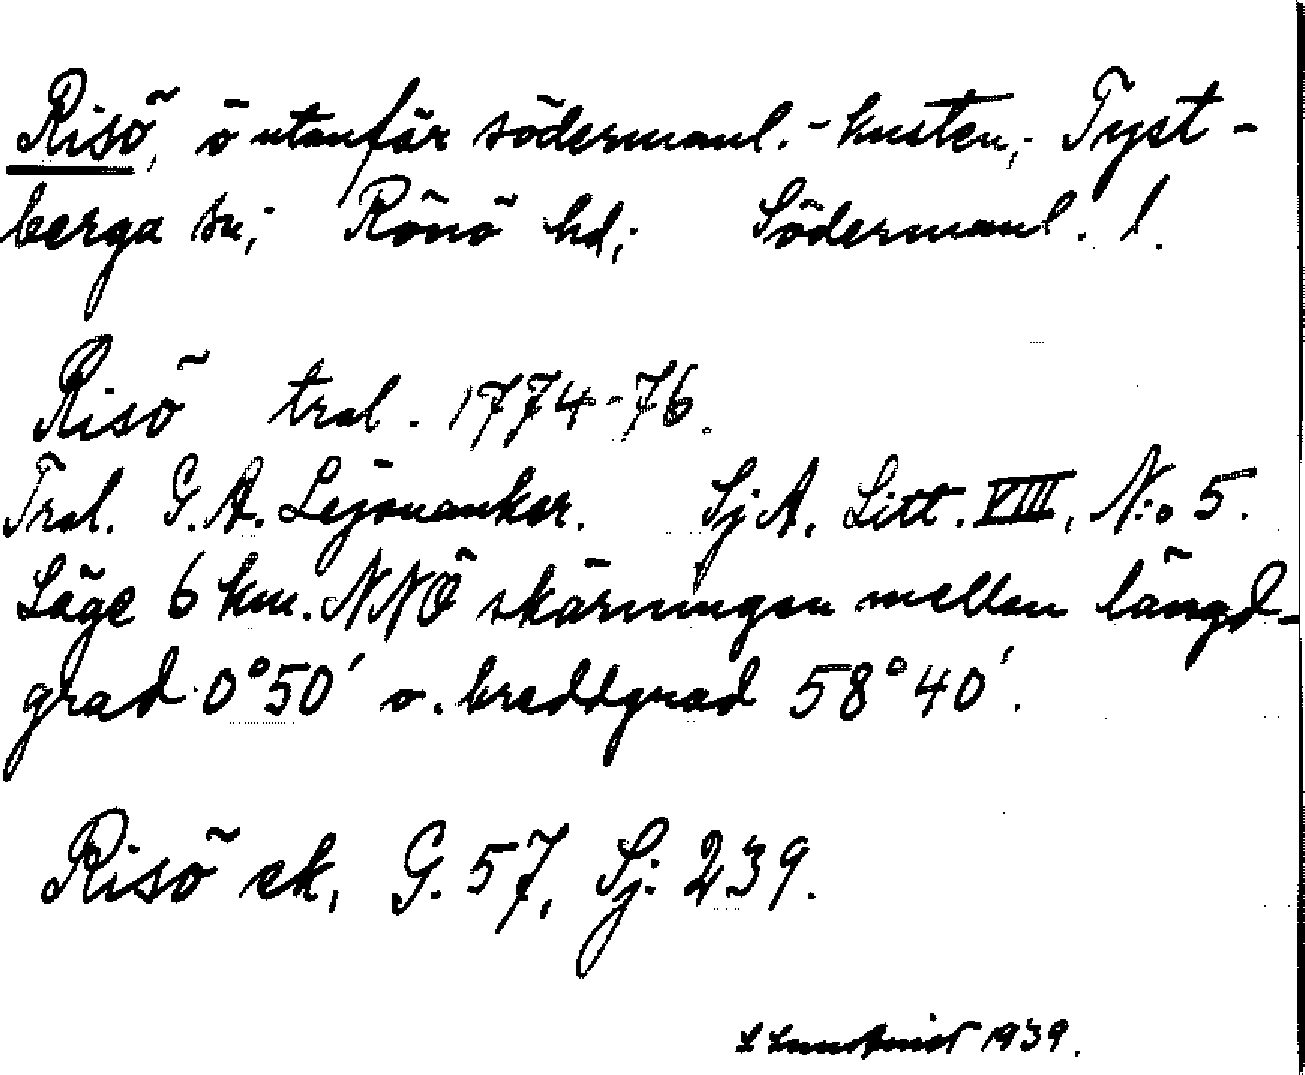 Risö, ö utanför södermanl.-kusten; Tyst-
berga sn; Rönö hd; Södermanl. l.
Risö tral. 1774-76.
Tral. G. A. Lejonanker. SjA. Litt. VIII, N:o 5.
Läge 6 km. NNÖ skärningen mellan längd-
grad 0°50′ o. breddgrad 58°40′.
Risö ek, G. 57, Sj. 239.
1939.